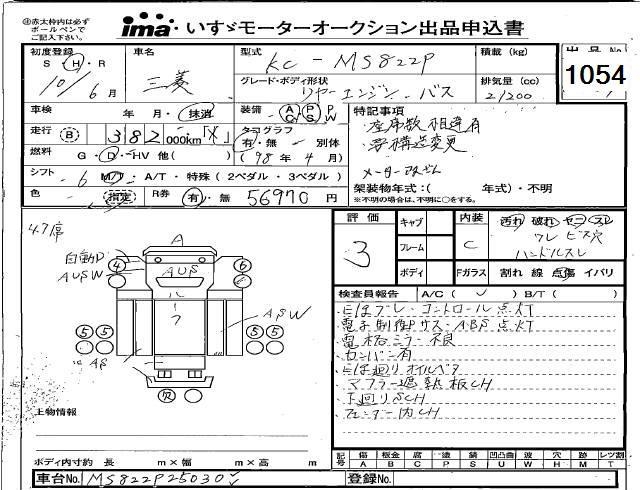 ㊟赤太枠内は必ず
ボールペンで
ご記入下さい。
ima いすゞモーターオークション出品申込書
初度登録 S H・R 10/6月
車名 三菱
型式 KC-MS822P
積載 (kg)
出品No 1054
グレード・ボディ形状 リヤーエンジン・バス
排気量 (cc) 21200
車検 年 月・抹消
装備 A/C P/S P/W
特記事項
・座席数相違有
・要構造変更
走行 B 382000km
タコグラフ 有・無 別体 (98年4月)
燃料 G・D・HV 他( )
メーター改ざん
シフト 6 M/T・A/T・特殊(2ペダル・3ペダル)
架装物年式:( 年式)・不明
※不明の場合は、不明に○をする。
色 指定 R券 有・無 56970円
評価 3
キャブ
フレーム
ボディ
内装 C
Fガラス
汚れ 破れ ヤニ スレ
ワレ ビス穴
ハンドルスレ
割れ 線 点傷 イバリ
検査員報告 A/C( ✓ ) B/T( )
電格ミラー不良
カンバン有
マフラー遮熱板CH
下廻りSCH
フェンダー内CH
自動D
AUSW
A
ASW
上物情報
ボディ内寸約 長 m×幅 m×高 m
記号 傷A 板金B 腐C 塗P 錆S 凹凸曲U 波W 穴H 跡M レツ割T
車台No. MS822P25030
登録No.